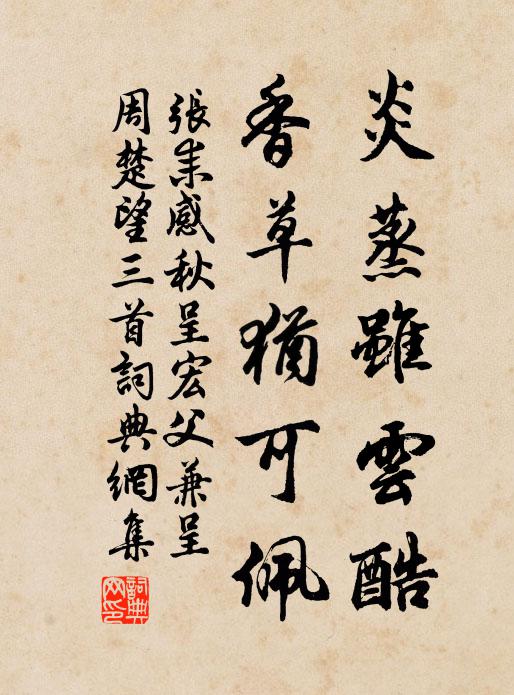 炎蒸雖雲酷
香草猶可佩
張耒感秋呈宏父兼呈
周楚望三首詞典網集
詞典網印